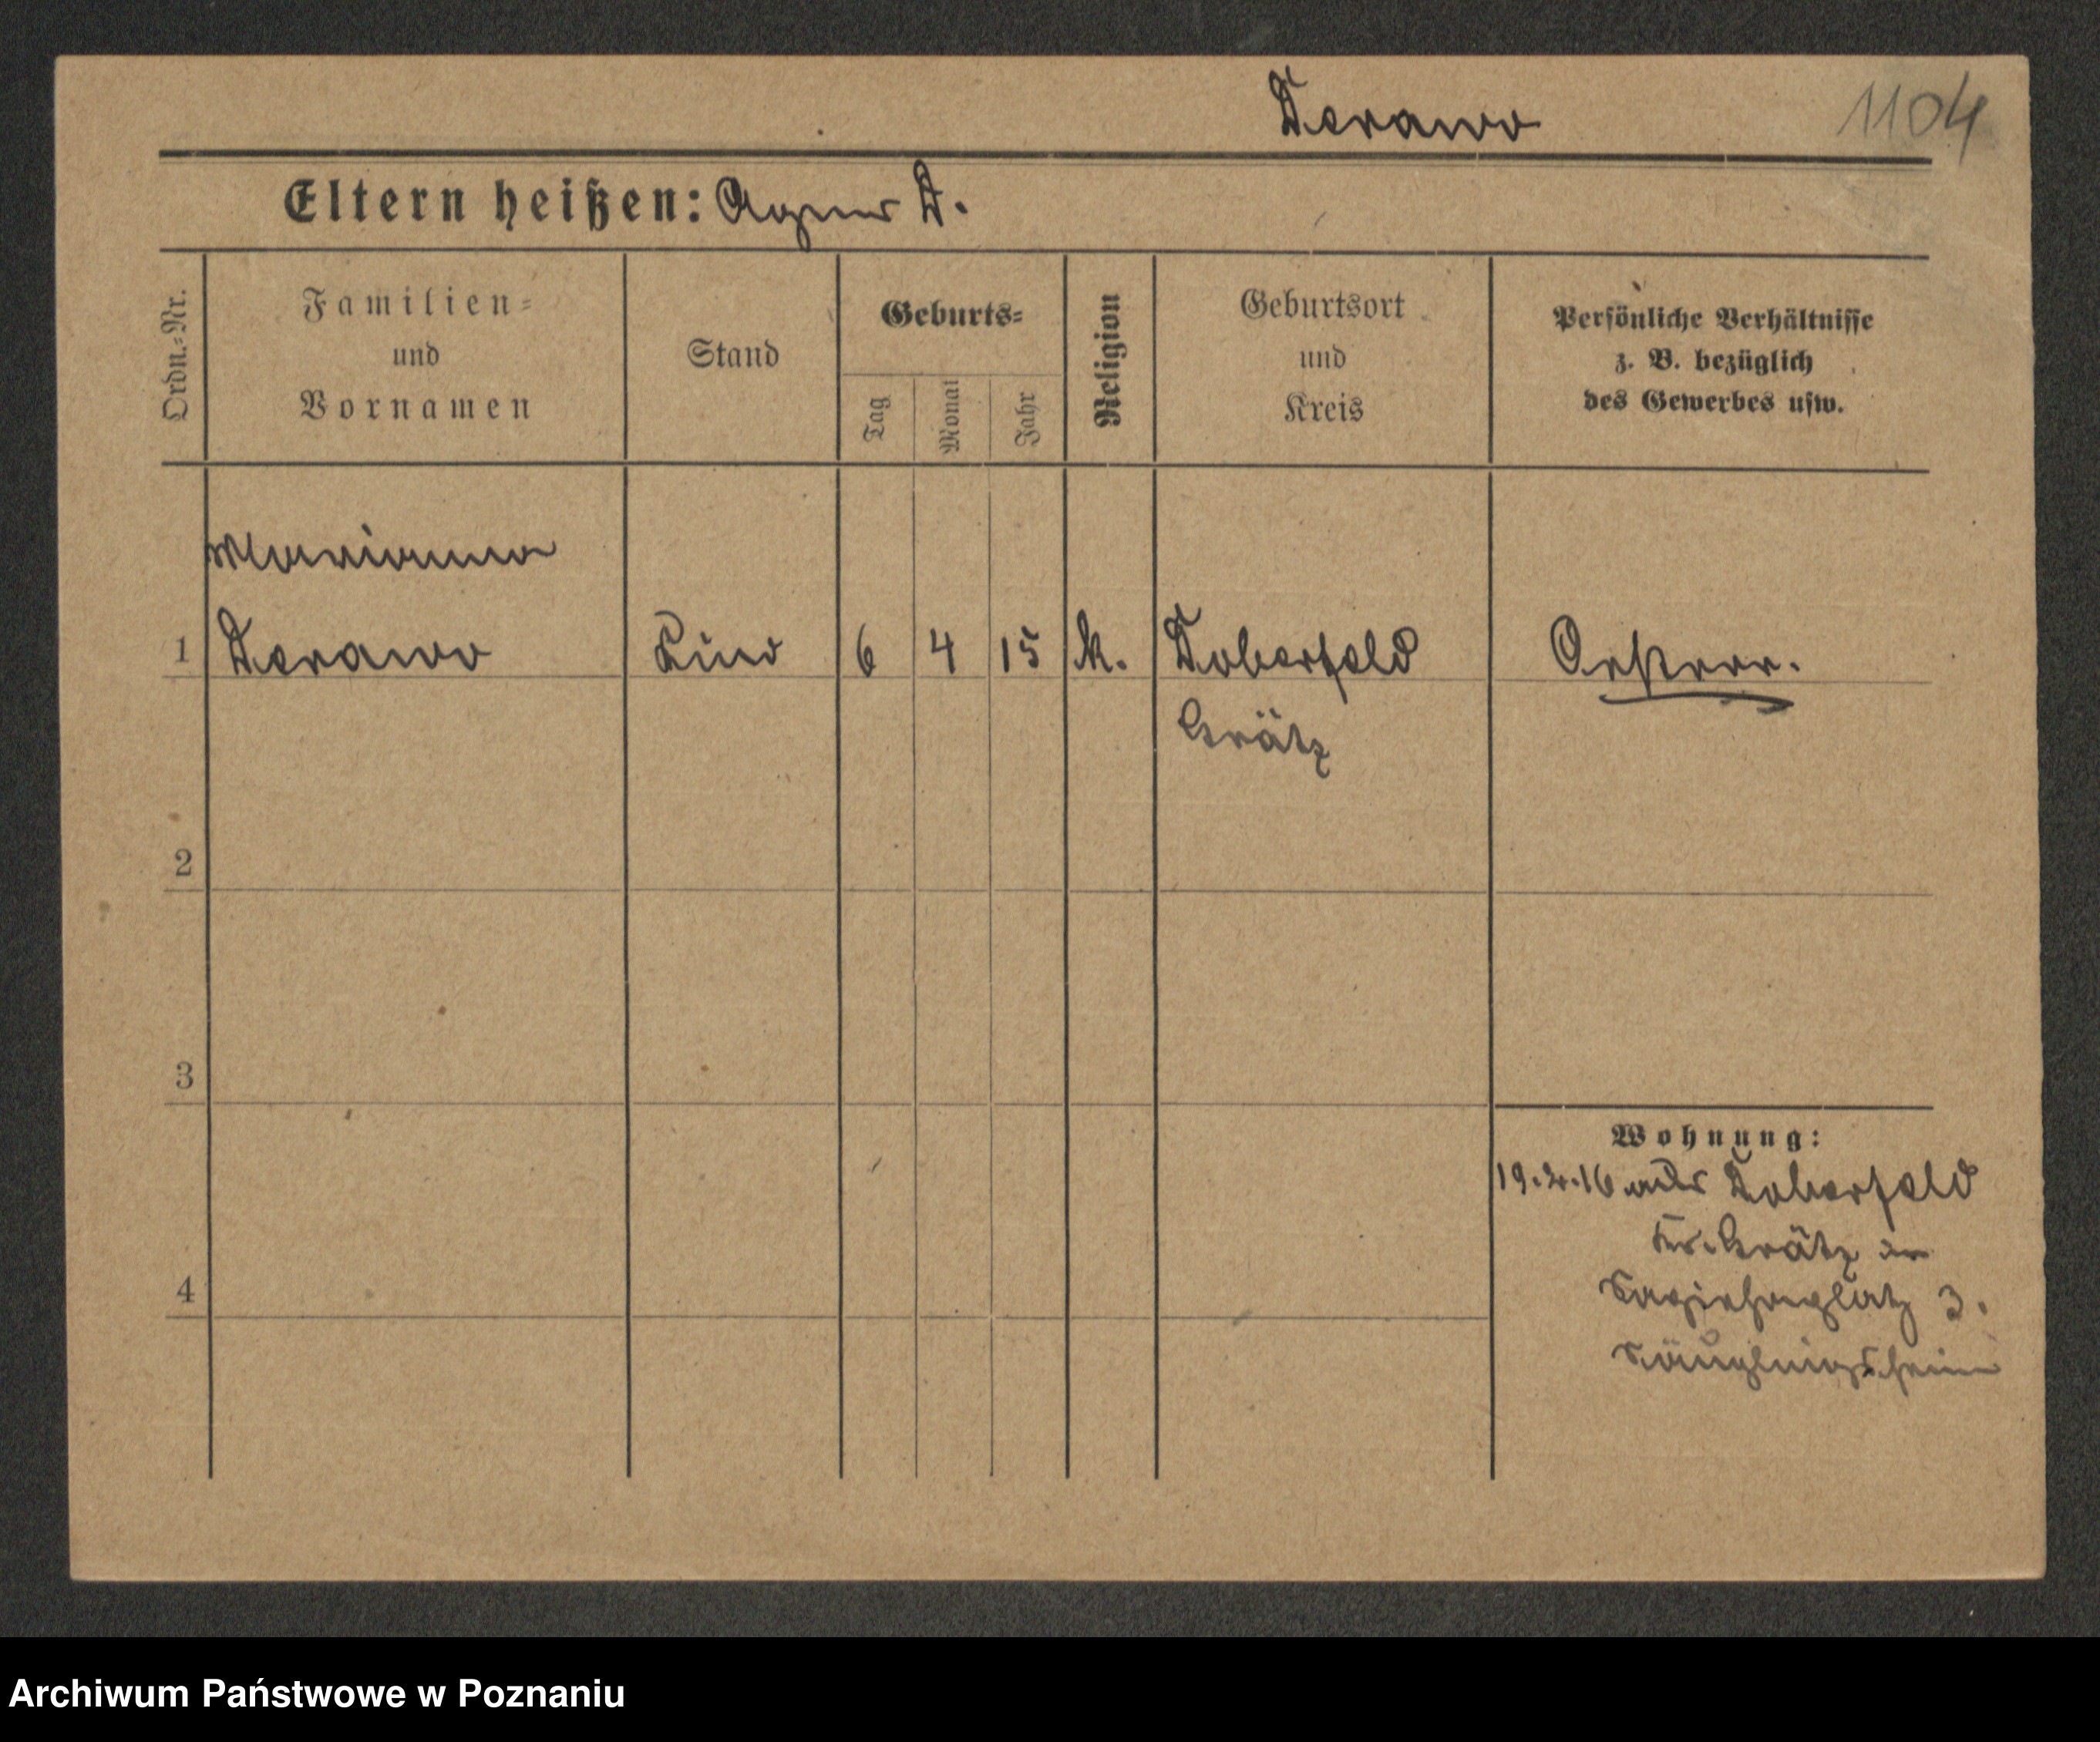 Derawo
1104
Eltern heißen: Agnes D.
Ordn.-Nr.
Familien-
und
Vornamen
Stand
Geburts-
Tag
Monat
Jahr
Religion
Geburtsort
und
Kreis
Persönliche Verhältnisse
z. B. bezüglich
des Gewerbes usw.
Marianna
1 Derawo Kind 6 4 15 k. Doberfeld Oesterr.
Grätz
2
3
4
Wohnung:
19.2.16 aus Doberfeld
Kr. Grätz
Sapiehaplatz 3.
Säuglingsheim
Archiwum Państwowe w Poznaniu